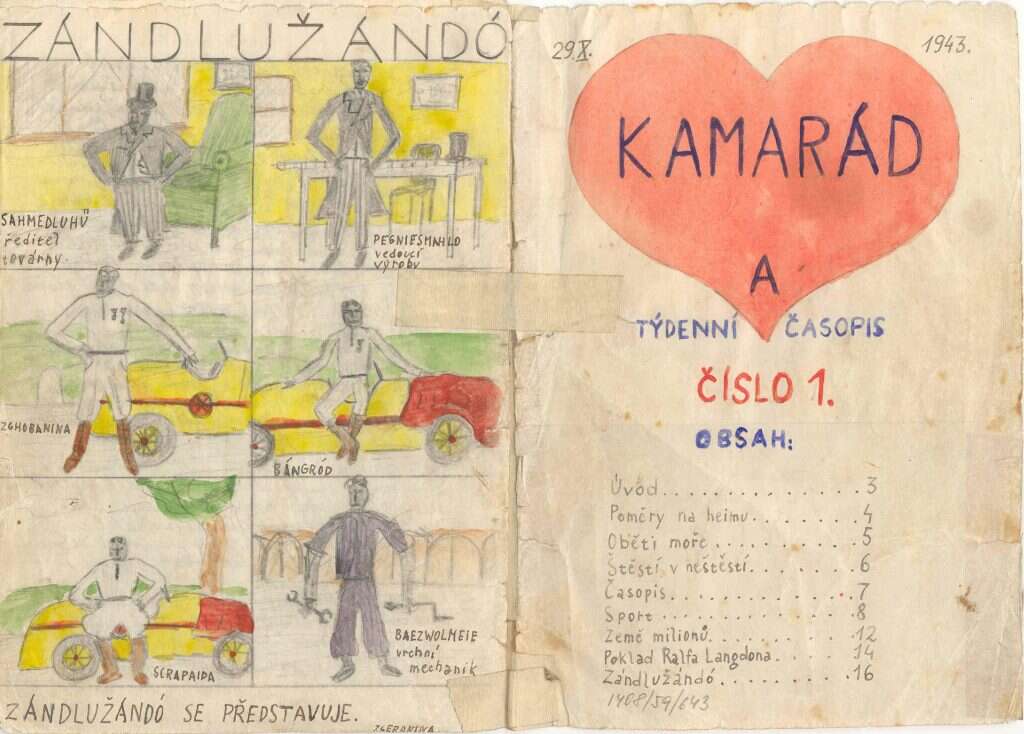 ZÁNDLUŽÁNDÓ
SAHMEDLUHŮ
ředitel
továrny.
PEGNIESMAHLO
vedoucí
výroby
ZGHOBANINA
BÁNGRÓD
SCRAPAIDA
BAEZWOLMEIE
vrchní
mechanik
ZÁNDLUŽÁNDÓ SE PŘEDSTAVUJE.
ZGERONINA.
29.X. 1943.
KAMARÁD
A
TÝDENNÍ ČASOPIS
ČÍSLO 1.
OBSAH:
Úvod..............3
Poměry na heimu.......4
Oběti moře..........5
Štěstí v neštěstí.......6
Časopis............7
Sport.............8
Země milionů.........12
Poklad Ralfa Langdona....14
Zándlužándó.........16
1408/59/643